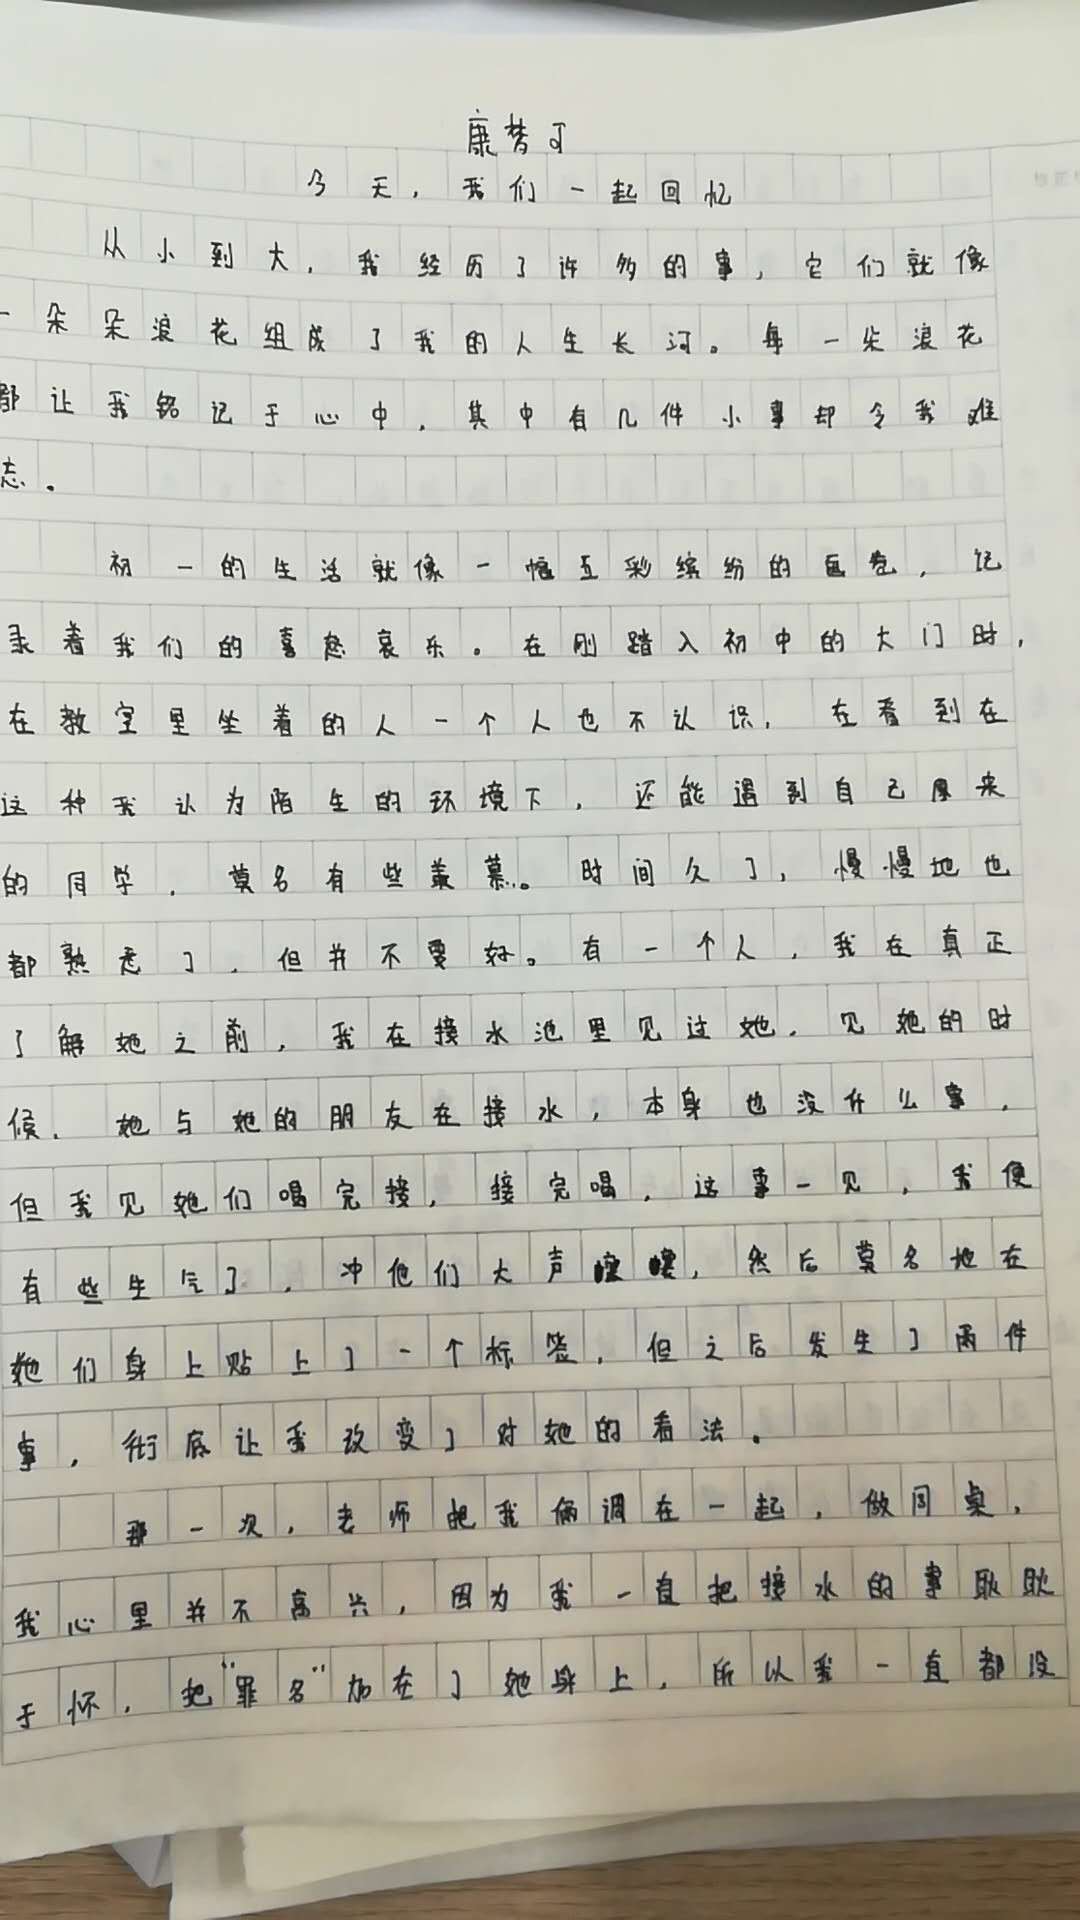 康梦可
今天，我们一起回忆
从小到大，我经历了许多的事，它们就像
一朵朵浪花组成了我的人生长河。每一朵浪花
都让我铭记于心中，其中有几件小事却令我难
忘。
初一的生活就像一幅五彩缤纷的画卷，记
录着我们的喜怒哀乐。在刚踏入初中的大门时，
在教室里坐着的人一个人也不认识，在看到在
这种我认为陌生的环境下，还能遇到自己原来
的同学，莫名有些羡慕。时间久了，慢慢地也
都熟悉了，但并不要好。有一个人，我在真正
了解她之前，我在接水池里见过她，见她的时
候，她与她的朋友在接水，本身也没什么事，
但我见她们喝完接，接完喝，这事一见，我便
有些生气了，冲他们大声嚷嚷，然后莫名地在
她们身上贴上了一个标签，但之后发生了两件
事，彻底让我改变了对她的看法。
那一次，老师把我俩调在一起，做同桌，
我心里并不高兴，因为我一直把接水的事耿耿
于怀，把“罪名”加在了她身上，所以我一直都没